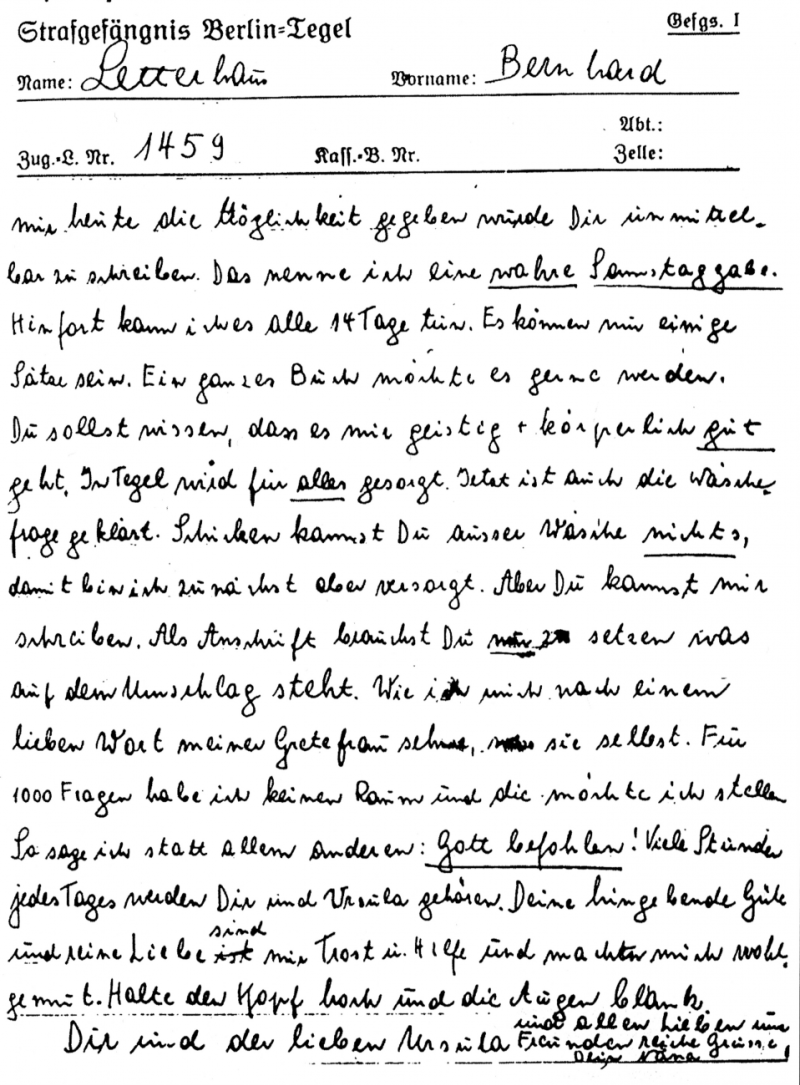 Strafgefängnis Berlin-Tegel
Gefgs. I
Name: Letterhaus Vorname: Bernhard
Abt.:
Zug.-L. Nr. 1459 Kass.-B. Nr. Zelle:
mir heute die Möglichkeit gegeben wurde Dir unmittel-
bar zu schreiben. Das nenne ich eine wahre Samstaggabe.
Hinfort kann ich es alle 14 Tage tun. Es können nur einige
Sätze sein. Ein ganzes Buch möchte es gerne werden.
Du sollst wissen, dass es mir geistig + körperlich gut
geht. In Tegel wird für alles gesorgt. Jetzt ist auch die Wäsche-
frage geklärt. Schicken kannst Du ausser Wäsche nichts,
damit bin ich zunächst aber versorgt. Aber Du kannst mir
schreiben. Als Anschrift brauchst Du nur zu setzen was
auf dem Umschlag steht. Wie ich mich nach einem
lieben Wort meiner Grete frau sehne, sie selbst. Für
1000 Fragen habe ich keinen Raum und die möchte ich stellen
So sage ich statt allem anderen: Gott befohlen! Viele Stunden
jedes Tages werden Dir und Ursula gehören. Deine hingebende Güte
sind
und reine Liebe ist mir Trost u. Hilfe und machen mich wohl-
gemut. Halte den Kopf hoch und die Augen blank.
und allen Lieben und
Dir und der lieben Ursula Freunden reiche Grüsse,
Dein